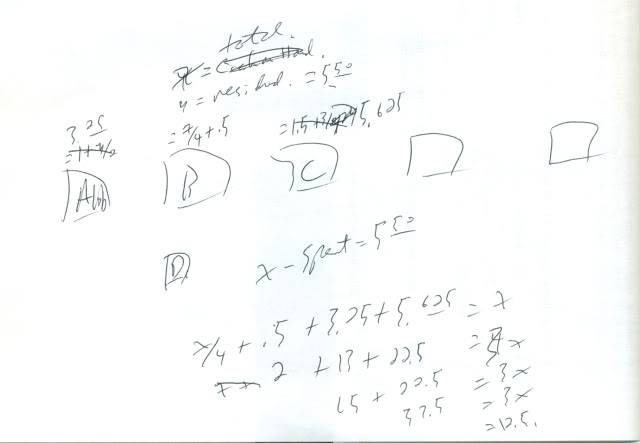 total.
x =
y = resid. = 5 50
3.25 = x/4 + .5 5.625
= 1 + x/2
Alb B C
D x - spent = 5 50
x/4 + .5 + 3.25 + 5.625 = x
2 + 13 + 22.5 = 3x
15 + 22.5 = 3x
37.5 = 3x
= 12.5.